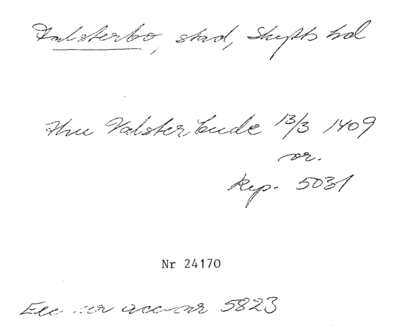 Falsterbo, stad, Skytts hd
thu Valsterbude 13/3 1409
or.
Rep. 5031
Nr 24170
5823